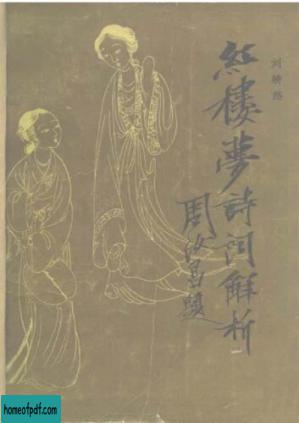 刘耕路
紅樓夢詩詞解析
周汝昌題
homeofpdf.com